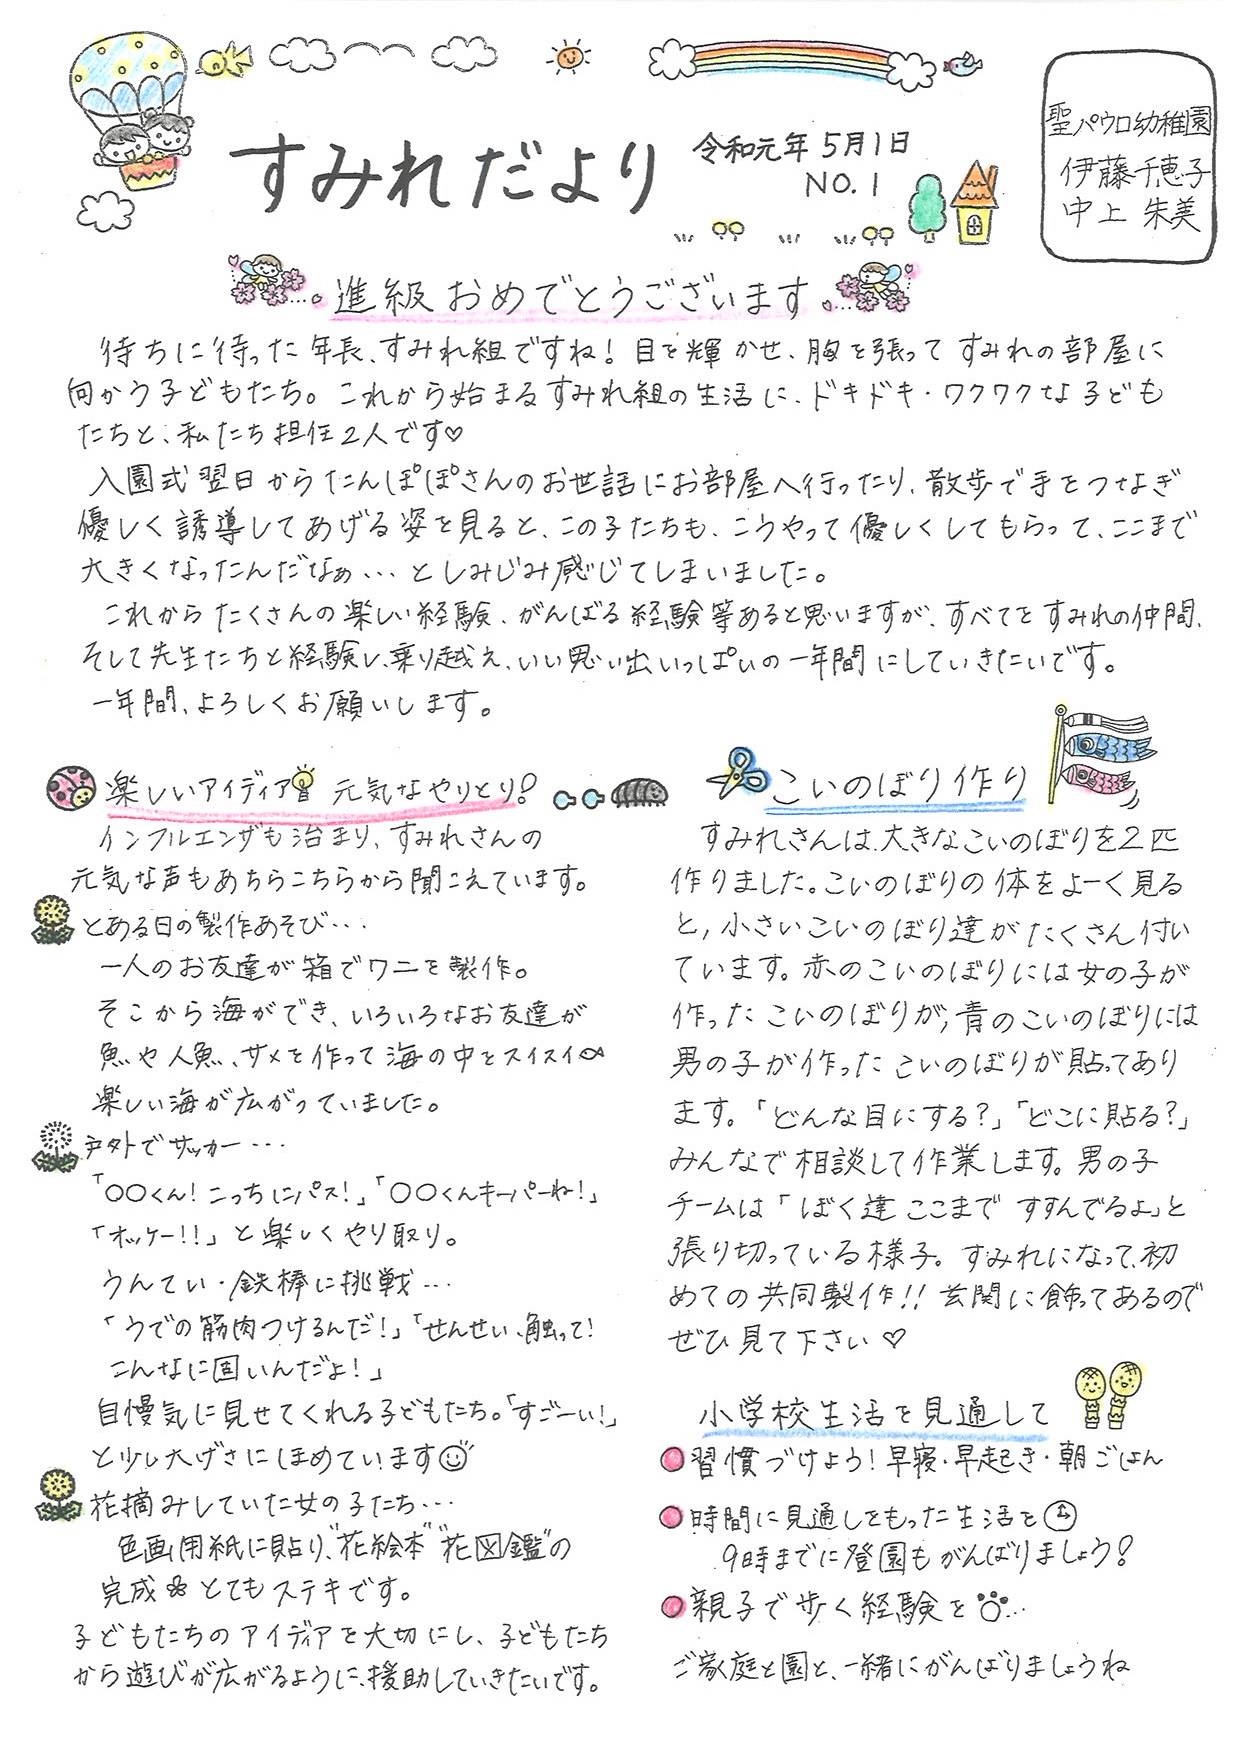 すみれだより
令和元年 5月1日
NO.1
聖パウロ幼稚園
伊藤千恵子
中上 朱美
進級おめでとうございます
待ちに待った年長、すみれ組ですね！目を輝かせ、胸を張って すみれの部屋に
向かう子どもたち。これから始まるすみれ組の生活に、ドキドキ・ワクワクな子ども
たちと、私たち担任2人です♡
入園式翌日からたんぽぽさんのお世話にお部屋へ行ったり、散歩で手をつなぎ
優しく誘導してあげる姿を見ると、この子たちも、こうやって優しくしてもらって、ここまで
大きくなったんだなぁ…としみじみ感じてしまいました。
これからたくさんの楽しい経験、がんばる経験等あると思いますが、すべてを すみれの仲間、
そして先生たちと経験し、乗り越え、いい思い出いっぱいの一年間にしていきたいです。
一年間、よろしくお願いします。
楽しいアイディア 元気なやりとり！
インフルエンザも治まり、すみれさんの
元気な声もあちらこちらから聞こえています。
とある日の製作あそび…
一人のお友達が箱でワニを製作。
そこから海ができ、いろいろなお友達が
魚や人魚、サメを作って海の中をスイスイ
楽しい海が広がっていました。
戸外でサッカー…
「〇〇くん！こっちにパス！」「〇〇くんキーパーね！」
「オッケー！！」と楽しくやり取り。
うんてい・鉄棒に挑戦…
「うでの筋肉つけるんだ！」「せんせい、触って！
こんなに固いんだよ！」
自慢気に見せてくれる子どもたち。「すごーい！」
と少し大げさにほめています
花摘みしていた女の子たち…
色画用紙に貼り、“花絵本”“花図鑑”の
完成 とてもステキです。
子どもたちのアイディアを大切にし、子どもたち
から遊びが広がるように、援助していきたいです。
こいのぼり作り
すみれさんは、大きなこいのぼりを2匹
作りました。こいのぼりの体をよーく見る
と、小さいこいのぼり達がたくさん付い
ています。赤のこいのぼりには女の子が
作ったこいのぼりが、青のこいのぼりには
男の子が作ったこいのぼりが貼ってあり
ます。「どんな目にする？」「どこに貼る？」
みんなで相談して作業します。男の子
チームは「ぼく達ここまで すすんでるよ」と
張り切っている様子。すみれになって、初
めての共同製作！！玄関に飾ってあるので
ぜひ見て下さい♡
小学校生活を見通して
習慣づけよう！早寝・早起き・朝ごはん
時間に見通しをもった生活を
9時までに登園もがんばりましょう！
親子で歩く経験を…
ご家庭と園と、一緒にがんばりましょうね